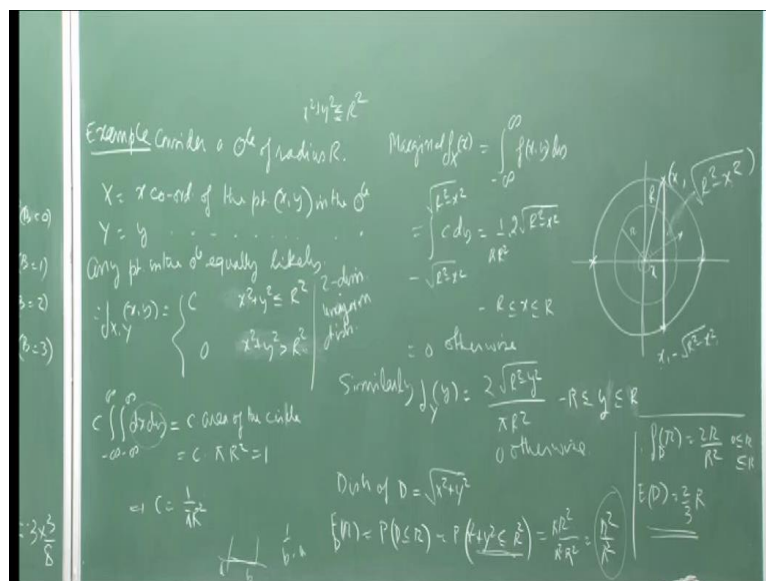 (B=0)
B=1)
B=2)
(B=3)
3x3/8
x²+y² ≤ R²
Example Consider a O^le of radius R.
X = x co-ord of the pt (x,y) in the O^le
Y = y . . . . . . . .
Any pt in the O^le equally likely.
∴ f_{X,Y}(x,y) = { C x²+y² ≤ R²
0 x²+y² > R²
2-dim.
uniform
distn.
C ∫_{-∞}^{∞} ∫_{-∞}^{∞} dx dy = C area of the circle
= C · πR² = 1
⇒ C = 1/πR²
b
Marginal f_X(x) = ∫_{-∞}^{∞} f(x,y) dy
= ∫_{-√(R²-x²)}^{√(R²-x²)} c dy = 1/πR² 2√(R²-x²)
-R ≤ x ≤ R
= 0 otherwise
Similarly f_Y(y) = 2√(R²-y²)/πR² -R ≤ y ≤ R
0 otherwise.
Distn of D = √(x²+y²)
F_D(r) = P(D ≤ r) = P(x²+y² ≤ r²) = πr²/πR² = r²/R²
(x, √(R²-x²))
R
r
x
x, -√(R²-x²)
f_D(r) = 2r/R² 0≤r≤R
E(D) = 2/3 R